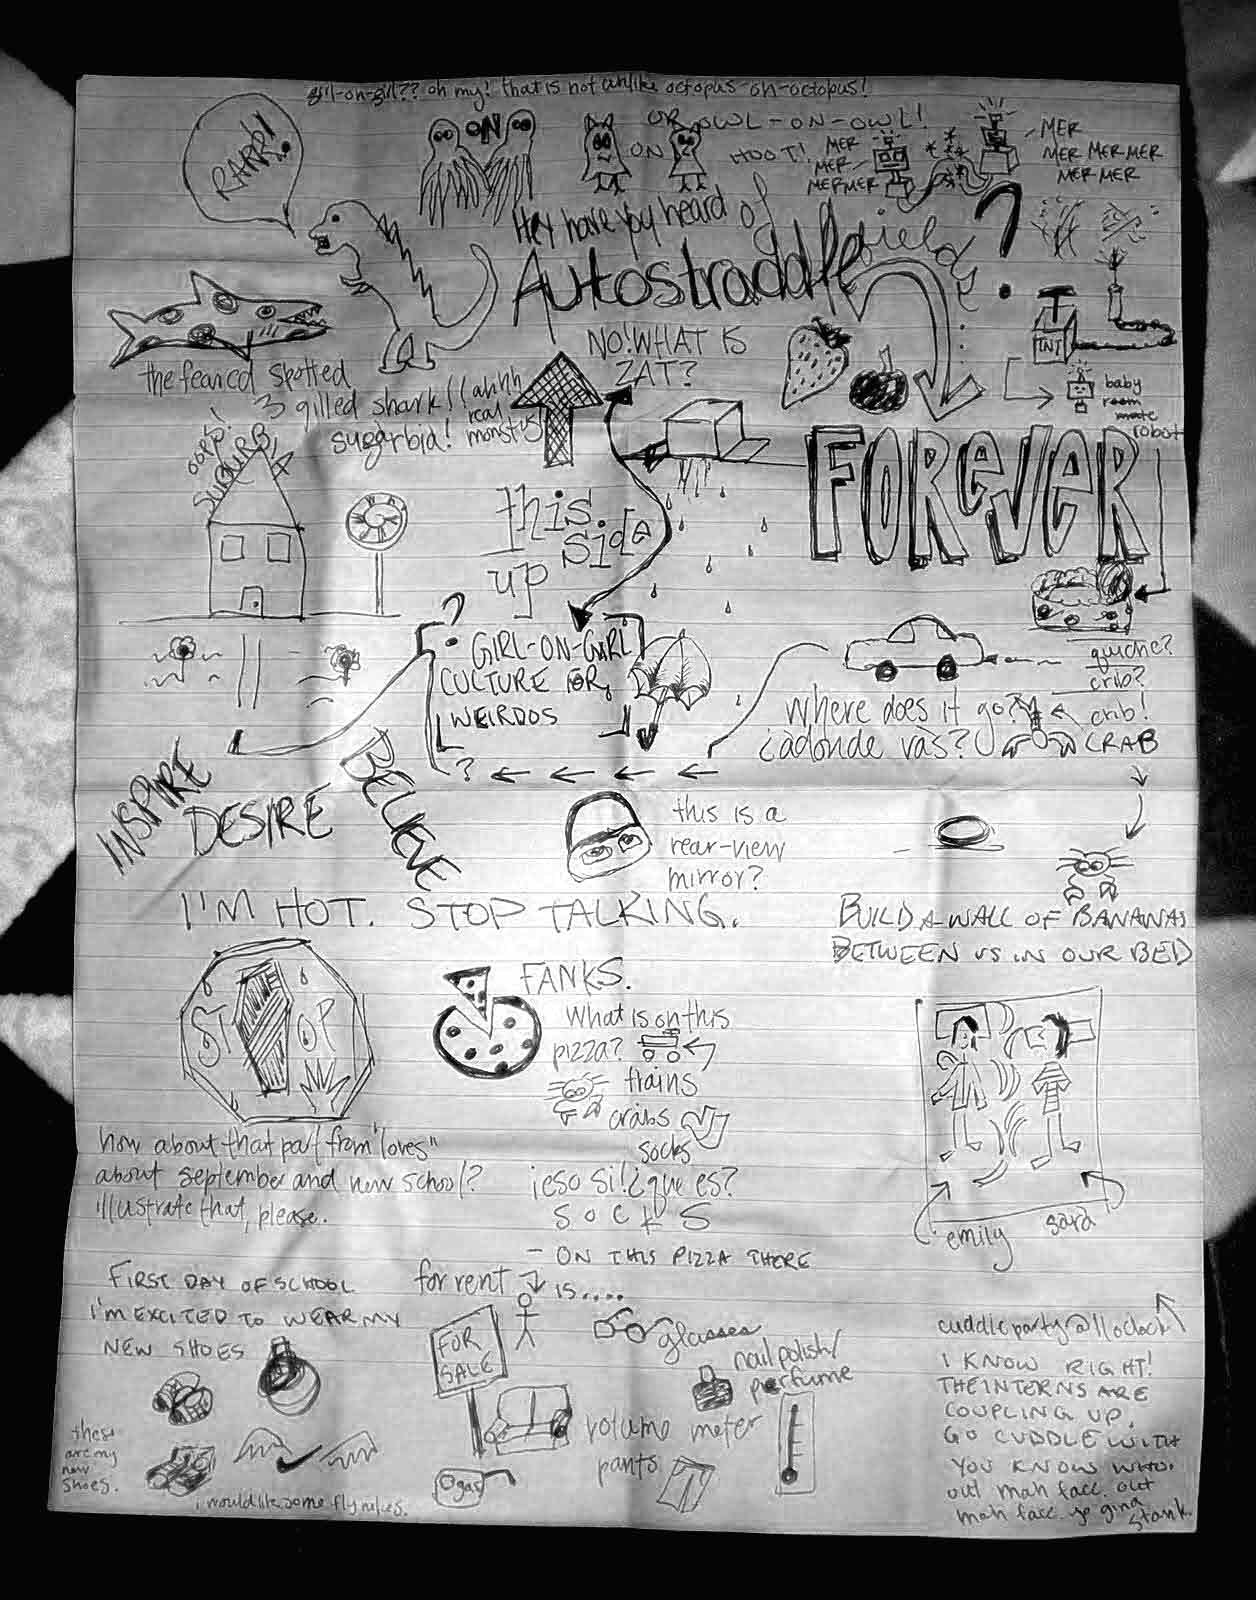 girl-on-girl?? oh my! that is not unlike octopus-on-octopus!
RAHR!
ON
OR OWL-ON-OWL!
ON
HOOT!
MER
MER
MERMER
MER
MER MER MER
MER MER
Hey have you heard of
Autostraddle
?
NO! WHAT IS
ZAT?
TNT
baby
room
mate
robot
the feared spotted
3 gilled shark!
sugarbia!
(ahhh
real
monsters)
oops!
SUBURBIA
FOREVER
this
side
up
?
GIRL-ON-GIRL
CULTURE FOR
WEIRDOS
?
quiche?
crib?
crib!
CRAB
where does it go?
¿adonde vas?
INSPIRE
DESIRE
BELIEVE
this is a
rear-view
mirror?
I'M HOT. STOP TALKING.
BUILD A WALL OF BANANAS
BETWEEN US IN OUR BED
STOP
FANKS.
What is on this
pizza?
trains
crabs
socks
how about that part from "loves"
about september and new school?
illustrate that, please.
¡eso si! ¿que es?
SOCKS
emily
sara
- ON THIS PIZZA THERE
IS....
FIRST DAY OF SCHOOL
I'M EXCITED TO WEAR MY
NEW SHOES
for rent
FOR
SALE
glasses
nail polish/
perfume
volume meter
pants
gas
these
are my
new
shoes.
i would like some fly nikes.
cuddle party @ 11 o'clock
I KNOW RIGHT!
THE INTERNS ARE
COUPLING UP.
GO CUDDLE WITH
YOU KNOW WHO.
out mah face. out
mah face.
stank.